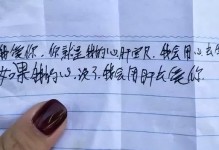 我爱你，你就是我的心肝宝贝，我会用心去爱
如果我的心没了我会用肝去爱你